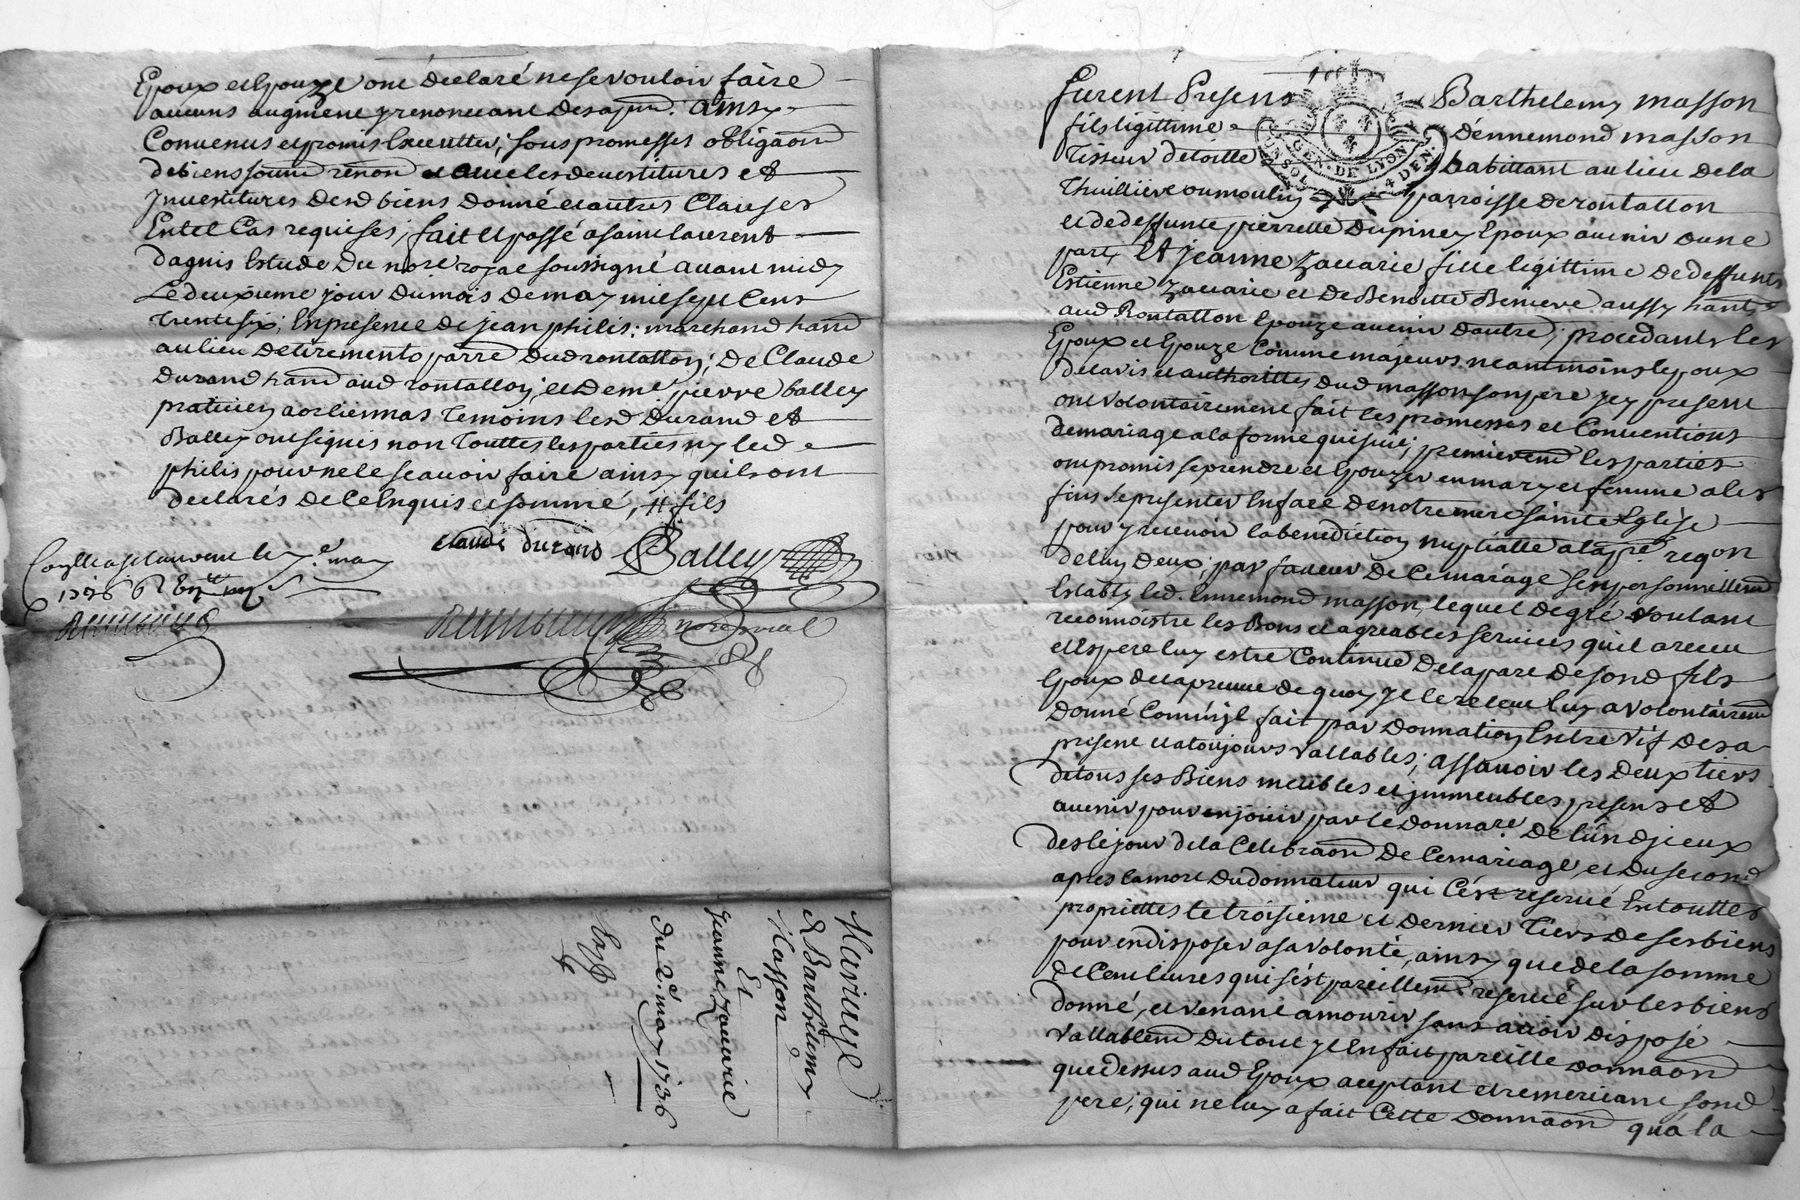 Epoux et Epouze ont declaré ne se vouloir faire
aucuns augment y renonceant desapnt. ainsy
Convenus et promis Executter, sous promesses obligaon
de biens soum renon et avec les devestitures et
Investitures desd biens donné et autres Clauses
En tel Cas requises, fait et passé a saint laurent
dagnis Estude du nore royal soussigné avant midy
Le deuxieme jour du mois de may mil sept cens
trente six; En presence de jean philis; marchand hant
au lieu de tiremento parre dud rontallon; de Claude
durand hant aud rontallon; et de me pierre balley
praticien a orliennas temoins lesd durand et
Balley ont signés non touttes les parties ny led
philis pour ne le scavoir faire ainsy quils ont
declarés de ce Enquis et sommé, // fils
claude durand Balley
Conlle a st laurent le 7e. may
1736
nore royal
Mariage
de Barthelemy
Masson
Et
Jeanne Zacarie
du 2e. may 1736
Exp
furent Presens Barthelemy masson
fils ligittime dennemond masson
Tisseur detoille habittant au lieu de la
Thuilliere ou moulin parroisse de rontallon
et de deffunte pierrette dupiney Epoux avenir dune
part, Et jeanne Zacarie fille ligittime de deffunts
Estienne Zacarie et de Benoitte Beneve aussy hante
aud Rontallon Epouze avenir dautre; procedants les
Epoux et Epouze Comme majeurs neantmoins lepoux
de lavis et authorittes dud masson son pere jcy present
ont volontairement fait les promesses et Conventions
de mariage a la forme qui suit; premierem les parties
ont promis se prendre et Epouzer en mary et femme a les
fins se presenter En face de notre mere sainte Eglise
pour y recevoir la benediction nuptialle a la pre reqon
de luy deux; par faveur de Ce mariage sest personnellem
Estably led. Ennemond masson, lequel de gré voulant
reconnoistre les Bons et agreables services quil a receu
et Espere luy estre Continué de la part de sond fils
Epoux de la preuve de quoy jl le releve luy a volontairem
donné Comme jl fait par donnation Entre vif des a
present et a toujours vallables; assavoir les deux tiers
de tous ses Biens meubles et jmmeubles presens et
avenir pour en jouir par le donnare de lun djeux
des le jour de la Celebraon de Ce mariage, et du second
apres la mort du donnateur qui Cest reservé En touttes
propriettes le troisieme et dernier Tiers de ses biens
pour en disposer a sa volonté, ainsy que de la somme
de Cent livres qui sest pareillem reservé sur les biens
donné, et venant a mourir sans avoir disposé
vallablem du tout jl En fait pareille donnaon
que dessus aud Epoux aceptant et remerciant sond
pere; qui ne luy a fait Cette donnaon qua la
GEN. DE LYON 4 DEN.